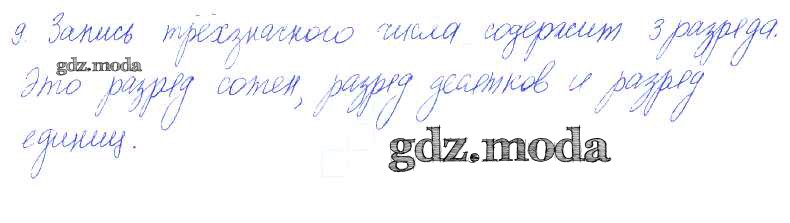 9. Запись трёхзначного числа содержит 3 разряда.
gdz.moda
Это разряд сотен, разряд десятков и разряд
единиц.
gdz.moda